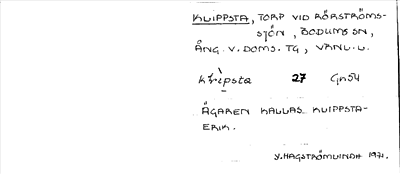 KLIPPSTA, TORP VID RÖRSTRÖMS-
SJÖN, BODUMS SN,
ÅNG. V. DOMS. TG, VÄNL. U.
klipsta 27 Gn54
ÄGAREN KALLAS KLIPPSTA-
ERIK.
Y. HAGSTRÖMLINDH 1971.